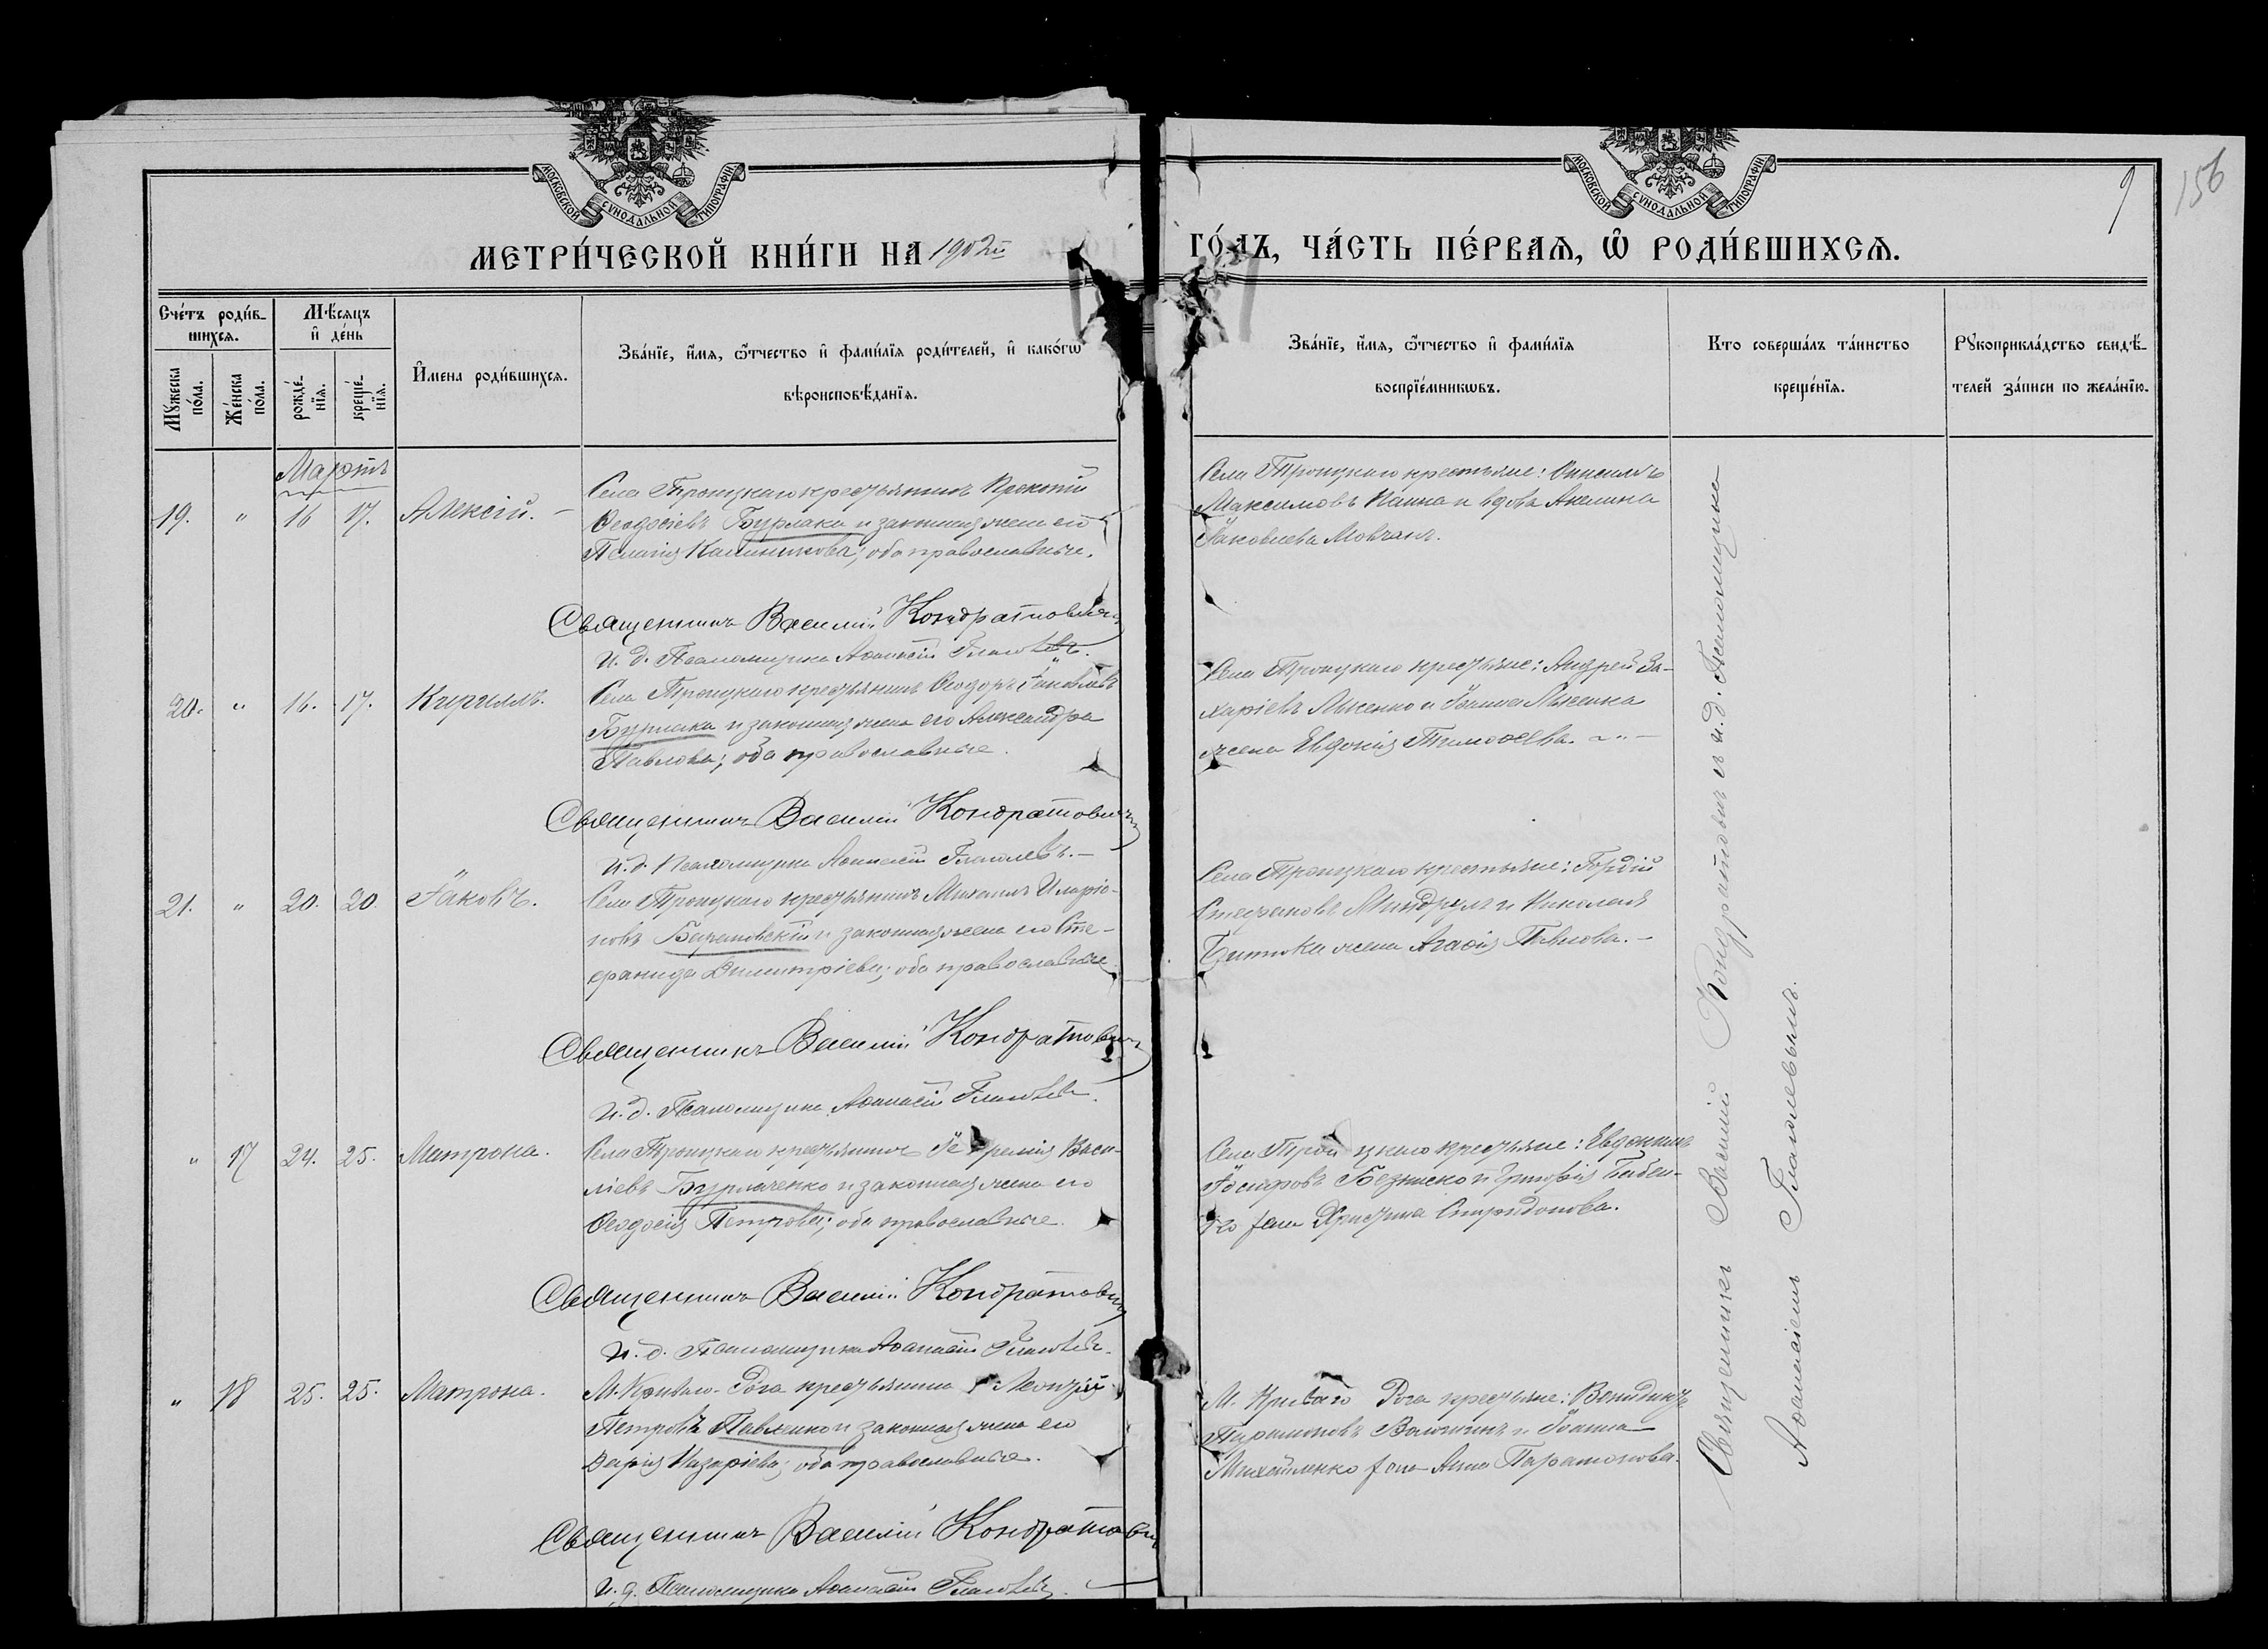 МОСКОВСКОЙ СѴНОДАЛЬНОЙ ТИПОГРАФІИ
МОСКОВСКОЙ СѴНОДАЛЬНОЙ ТИПОГРАФІИ
9
156
МЕТРИ́ЧЕСКОЙ КНИ́ГИ НА 1902й ГО́ДЪ, ЧА́СТЬ ПЕ́РВАѦ, Ѡ҆ РОДИ́ВШИХСѦ.
Сче́тъ роди́в-
шихсѧ.
Мꙋжеска по́ла.
Же́нска по́ла.
Мѣ́сѧцъ
и҆ де́нь
рожде́-нїѧ.
креще́-нїѧ.
И҆мена роди́вшихсѧ.
Зва́нїе, и҆́мѧ, ѻ҆́тчество и҆ фами́лїѧ роди́телей, и҆ како́гѡ
вѣроисповѣ́данїѧ.
Зва́нїе, и҆́мѧ, ѻ҆́тчество и҆ фами́лїѧ
воспрїе́мникѡвъ.
Кто соверша́лъ та́инство
креще́нїѧ.
Рꙋкоприкла́дство свидѣ́-
телей за́писи по жела́нїю.
Мартъ
19. " 16 17. Алексій. –
Села Троицкаго крестьянинъ Прокопій
Ѳеодосіевъ Бурлака и законная жена его
Пелагія Калинникова; оба православные.
Села Троицкаго крестьяне:
Максимовъ и вдова Акилина
Іаковлева Мовчанъ.
Священникъ Василій Кондратовичъ
И. д. Псаломщика Аѳанасій Глаголевъ.
20. " 16. 17. Кириллъ.
Села Троицкаго крестьянинъ Ѳеодоръ Іаковлевъ
Бурлака и законная жена его Александра
Павлова; оба православные.
Села Троицкаго крестьяне: Андрей За-
харіевъ Лысенко и Іоанна Лысенка
жена Евдокія Тимоѳеева.
Священникъ Василій Кондратовичъ
И. д. Псаломщика Аѳанасій Глаголевъ. –
21. " 20. 20. Іаковъ.
Села Троицкаго крестьянинъ Михаилъ Иларіо-
новъ и законная жена его Сте-
фанида Димитріева; оба православные
Села Троицкаго крестьяне: Гордій
Стефановъ и Николая
жена Агаѳія Павлова. –
Священникъ Василій Кондратовичъ
И. д. Псаломщика Аѳанасій Глаголевъ.
" 17 24. 25. Матрона.
Села Троицкаго крестьянинъ Васи-
ліевъ Бурлаченко и законная жена его
Ѳеодосія Петрова; оба православные.
Села Троицкаго крестьяне: Евдокимъ
Іосифовъ и Григорія Бабен-
ко жена Христина Спиридонова.
Священникъ Василій Кондратовичъ
И. д. Псаломщика Аѳанасій Глаголевъ.
" 18 25. 25. Матрона.
М. Кривого-Рога крестьянинъ Леонтій
Петровъ Павленко и законная жена его
Дарія Назаріева; оба православные.
М. Криваго Рога крестьяне:
Парамоновъ Волошинъ и Іоанна
Михайленко жена Анна Парамонова.
Священникъ Василій Кондратовичъ
И. д. Псаломщика Аѳанасій Глаголевъ. –
Священникъ Василій Кондратовичъ съ и. д. Псаломщика
Аѳанасіемъ Глаголевымъ.